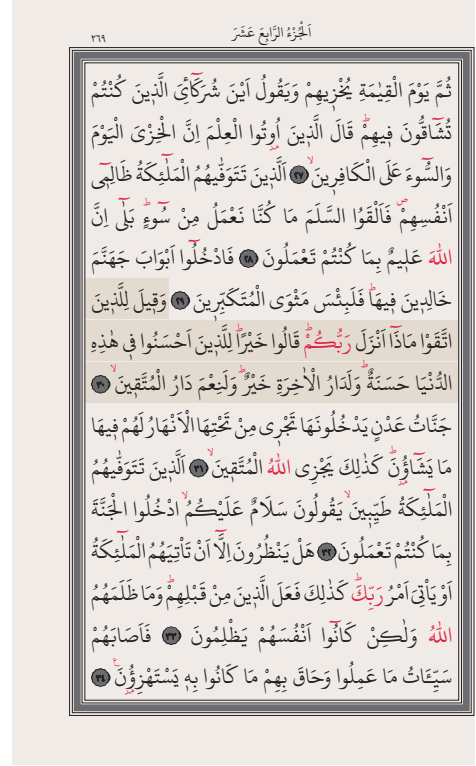 اَلْجُزْءُ الرَّابِعَ عَشَرَ
٢٦٩
ثُمَّ يَوْمَ الْقِيٰمَةِ يُخْزٖيهِمْ وَيَقُولُ اَيْنَ شُرَكَٓاءِيَ الَّذٖينَ كُنْتُمْ
تُشَٓاقُّونَ فٖيهِمْؕ قَالَ الَّذٖينَ اُو۫تُوا الْعِلْمَ اِنَّ الْخِزْيَ الْيَوْمَ
وَالسُّٓوءَ عَلَى الْكَافِرٖينَۙ ﴿٢٧﴾ اَلَّذٖينَ تَتَوَفّٰيهُمُ الْمَلٰٓئِكَةُ ظَالِمٖٓي
اَنْفُسِهِمْࣕ فَاَلْقَوُا السَّلَمَ مَا كُنَّا نَعْمَلُ مِنْ سُٓوءٍؕ بَلٰٓى اِنَّ
اللّٰهَ عَلٖيمٌ بِمَا كُنْتُمْ تَعْمَلُونَ ﴿٢٨﴾ فَادْخُلُٓوا اَبْوَابَ جَهَنَّمَ
خَالِدٖينَ فٖيهَاؕ فَلَبِئْسَ مَثْوَى الْمُتَكَبِّرٖينَ ﴿٢٩﴾ وَقٖيلَ لِلَّذٖينَ
اتَّقَوْا مَاذَٓا اَنْزَلَ رَبُّكُمْؕ قَالُوا خَيْرًاؕ لِلَّذٖينَ اَحْسَنُوا فٖي هٰذِهِ
الدُّنْيَا حَسَنَةٌؕ وَلَدَارُ الْاٰخِرَةِ خَيْرٌؕ وَلَنِعْمَ دَارُ الْمُتَّقٖينَۙ ﴿٣٠﴾
جَنَّاتُ عَدْنٍ يَدْخُلُونَهَا تَجْرٖي مِنْ تَحْتِهَا الْاَنْهَارُ لَهُمْ فٖيهَا
مَا يَشَٓاؤُ۫نَؕ كَذٰلِكَ يَجْزِي اللّٰهُ الْمُتَّقٖينَۙ ﴿٣١﴾ اَلَّذٖينَ تَتَوَفّٰيهُمُ
الْمَلٰٓئِكَةُ طَيِّبٖينَۙ يَقُولُونَ سَلَامٌ عَلَيْكُمُۙ ادْخُلُوا الْجَنَّةَ
بِمَا كُنْتُمْ تَعْمَلُونَ ﴿٣٢﴾ هَلْ يَنْظُرُونَ اِلَّٓا اَنْ تَأْتِيَهُمُ الْمَلٰٓئِكَةُ
اَوْ يَأْتِيَ اَمْرُ رَبِّكَؕ كَذٰلِكَ فَعَلَ الَّذٖينَ مِنْ قَبْلِهِمْؕ وَمَا ظَلَمَهُمُ
اللّٰهُ وَلٰكِنْ كَانُٓوا اَنْفُسَهُمْ يَظْلِمُونَ ﴿٣٣﴾ فَاَصَابَهُمْ
سَيِّـَٔاتُ مَا عَمِلُوا وَحَاقَ بِهِمْ مَا كَانُوا بِهٖ يَسْتَهْزِؤُ۫نَ۟ ﴿٣٤﴾